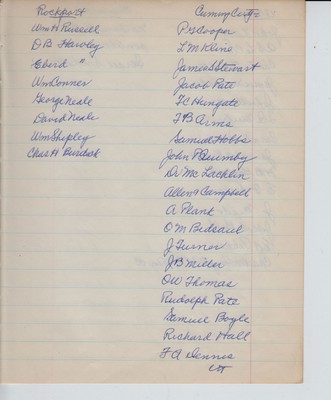 Rockport
Wm H Russell
D B Hawley
Eberd "
Wm Conner
George Neale
David Neale
Wm Shipley
Chas H Burdick
P G Cooper
L M Kline
James S Stewart
Jacob Pate
T C Hungate
F B Arms
Samuel Hobbs
John P Quimby
Dr McLacklin
Allen Campbell
A Plant
O M Bedsaul
J Turner
J B Miller
O W Thomas
Rudolph Pate
Samuel Boyle
Richard Hall
F A Dennis